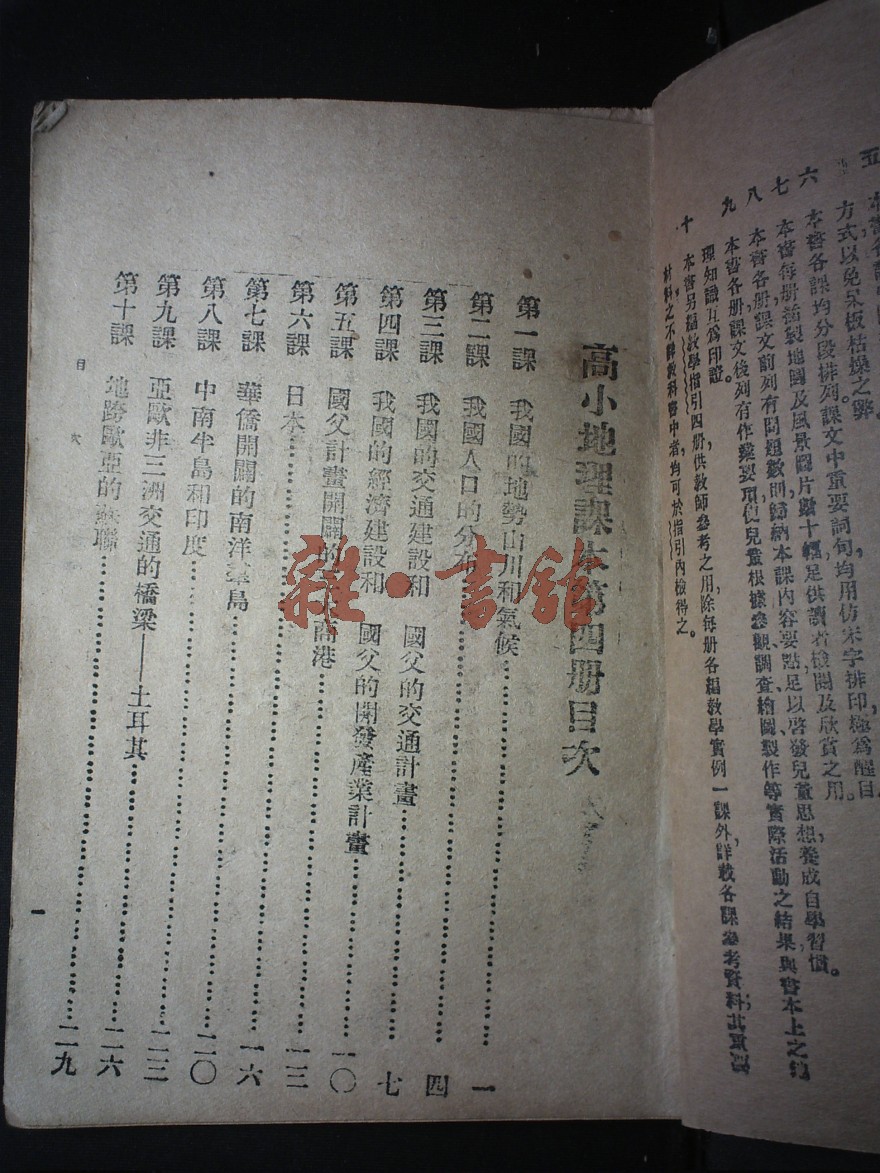 五
方式以免呆板枯燥之弊。
六 本書各課均分段排列課文中重要詞句，均用仿宋字排印極爲醒目。
七 本書每册插製地圖及風景圖片數十幅足供讀者檢閱及欣賞之用。
八 本書各册課文前列有問題數則歸納本課內容要點足以啓發兒童思想，養成自學習慣。
九 本書各册課文後列有作業要項使兒童根據參觀調查繪圖製作等實際活動之結果與書本上之
理知識互爲印證。
十 本書另編教學指引四册供教師參考之用除每册各編教學實例一課外詳載各課參考資料其重
材料之不詳教科書中者均可於指引內檢得之。
高小地理課本第四册目次
第一課 我國的地勢山川和氣候……一
第二課 我國人口的分布……四
第三課 我國的交通建設和 國父的交通計畫……七
第四課 我國的經濟建設和 國父的開發產業計畫……一〇
第五課 國父計畫開闢的 大商港……一三
第六課 日本……一六
第七課 華僑開闢的南洋羣島……二〇
第八課 中南半島和印度……二三
第九課 亞歐非三洲交通的橋梁——土耳其……二六
第十課 地跨歐亞的蘇聯……二九
目 次
一
雜·書館